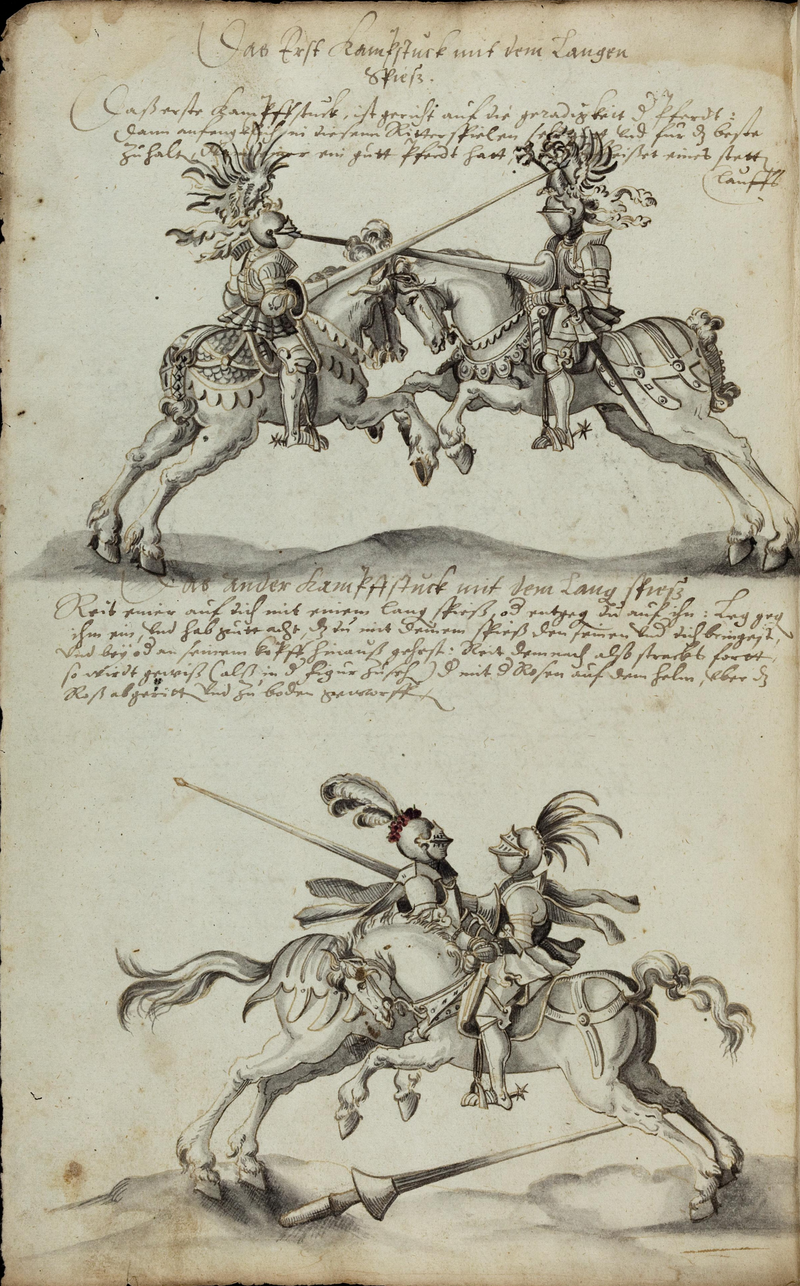 Das Erst Kampfstuck mit dem Langen
Spieß.
Daß erste Kampffstuck, ist gericht auf die geradigkeit d Pferdt:
dann anfengklich in diesem Ritterspielen und für dz beste
zu halt einer ein gutt Pferdt hatt eines statt
lauffs
Das Ander Kampffstuck mit dem Lang spieß
Reit einer auf dich mit einem lang spieß, od entgeg du auf ihn: Leg geg
ihm ein, und hab gute acht, dz du mit deinem spieß den seinen und dich bringest,
und bey od an seinem kopff hinauß gehest: Reit demnach alß stracks fortt,
so wirdt gewiß (alß in d Figur zusehe) d mit d Rosen auf dem helm, uber dz
Roß abgeritt und zu boden geworffe